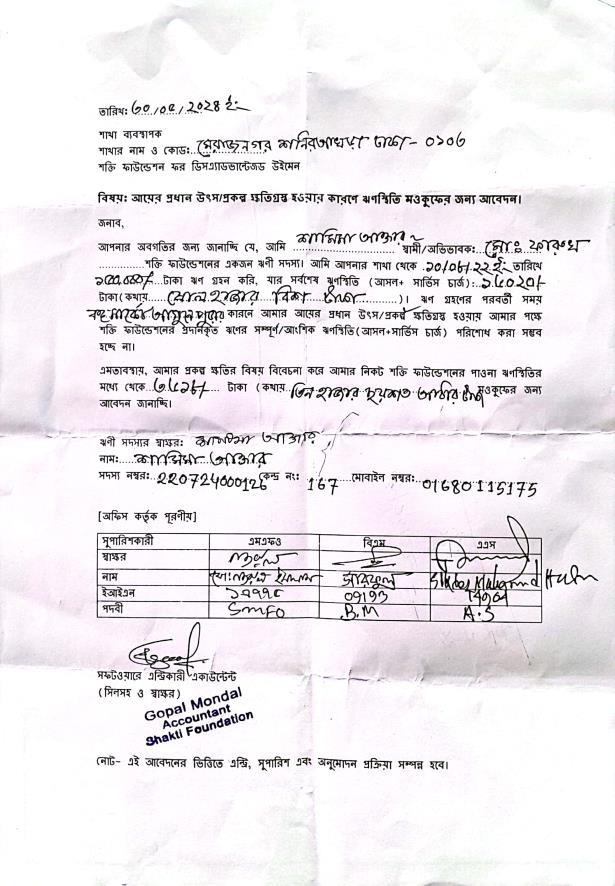 তারিখ: ৩০/০৫/২০২৪ ইং
শাখা ব্যবস্থাপক
শাখার নাম ও কোড: মেরাজনগর শনিরআখড়া ঢাকা - ০১০৬
শক্তি ফাউন্ডেশন ফর ডিসএ্যাডভান্টেজড উইমেন
বিষয়: আয়ের প্রধান উৎস/প্রকল্প ক্ষতিগ্রস্থ হওয়ার কারণে ঋণস্থিতি মওকুফের জন্য আবেদন।
জনাব,
আপনার অবগতির জন্য জানাচ্ছি যে, আমি শামিমা আক্তার স্বামী/অভিভাবক: মোঃ ফারুখ
শক্তি ফাউন্ডেশনের একজন ঋণী সদস্য। আমি আপনার শাখা থেকে ১০/০৮/২২ ইং তারিখে
টাকা ঋণ গ্রহন করি, যার সর্বশেষ ঋণস্থিতি (আসল+ সার্ভিস চার্জ):
টাকা (কথায় )। ঋণ গ্রহণের পরবর্তী সময়
কারনে আমার আয়ের প্রধান উৎস/প্রকল্প ক্ষতিগ্রস্থ হওয়ায় আমার পক্ষে
শক্তি ফাউন্ডেশনের প্রদানিকৃত ঋণের সম্পূর্ণ/আংশিক ঋণস্থিতি(আসল+সার্ভিস চার্জ) পরিশোধ করা সম্ভব
হচ্ছে না।
এমতাবস্থায়, আমার প্রকল্প ক্ষতির বিষয় বিবেচনা করে আমার নিকট শক্তি ফাউন্ডেশনের পাওনা ঋণস্থিতির
মধ্যে থেকে টাকা (কথায় তিন হাজার ছয়শত আঠার টাকা মওকুফের জন্য
আবেদন জানাচ্ছি।
ঋণী সদস্যর স্বাক্ষর: শামিমা আক্তার
নাম: শামিমা আক্তার
সদস্য নম্বর: কেন্দ্র নং: 167 মোবাইল নম্বর: 01680115175
[অফিস কর্তৃক পূরণীয়]
সুপারিশকারী এমএফও বিএম এএস
স্বাক্ষর
নাম
ইআইএন 09193
পদবী SMFO B.M A.S
সফটওয়ারে এন্ট্রিকারী একাউন্টেন্ট
(সিলসহ ও স্বাক্ষর)
Gopal Mondal
Accountant
Shakti Foundation
নোট- এই আবেদনের ভিত্তিতে এন্ট্রি, সুপারিশ এবং অনুমোদন প্রক্রিয়া সম্পন্ন হবে।